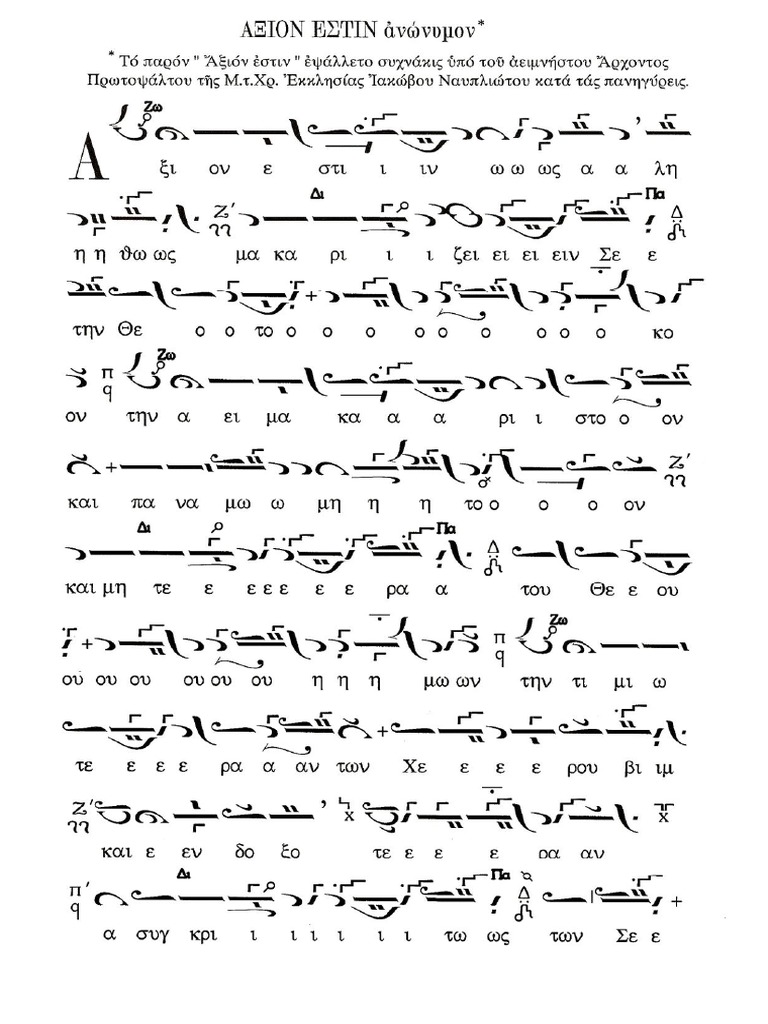 ΑΞΙΟΝ ΕΣΤΙΝ ἀνώνυμον*
* Τό παρόν " Ἄξιόν ἐστιν " ἐψάλλετο συχνάκις ὑπό τοῦ ἀειμνήστου Ἄρχοντος
Πρωτοψάλτου τῆς Μ.τ.Χρ. Ἐκκλησίας Ἰακώβου Ναυπλιώτου κατά τάς πανηγύρεις.
Ζω
Α ξι ον ε στι ι ιν ω ω ως α α λη
Δι Πα
η η θω ως μα κα ρι ι ι ζει ει ει ειν Σε ε
την Θε ο ο το ο ο ο ο ο ο ο ο ο κο
Ζω
ον την α ει μα κα α α ρι ι στο ο ον
και πα να μω ω μη η η το ο ο ο ον
Δι Πα
και μη τε ε ε ε ε ε ε ρα α του Θε ε ου
Ζω
ού ου ου ου ου ου η η η μω ων την τι μι ω
τε ε ε ε ρα α αν των Χε ε ε ε ρου βι ιμ
και ε εν δο ξο τε ε ε ε ρα αν
Δι Πα
α συγ κρι ι ι ι ι ι ι τω ως των Σε ε